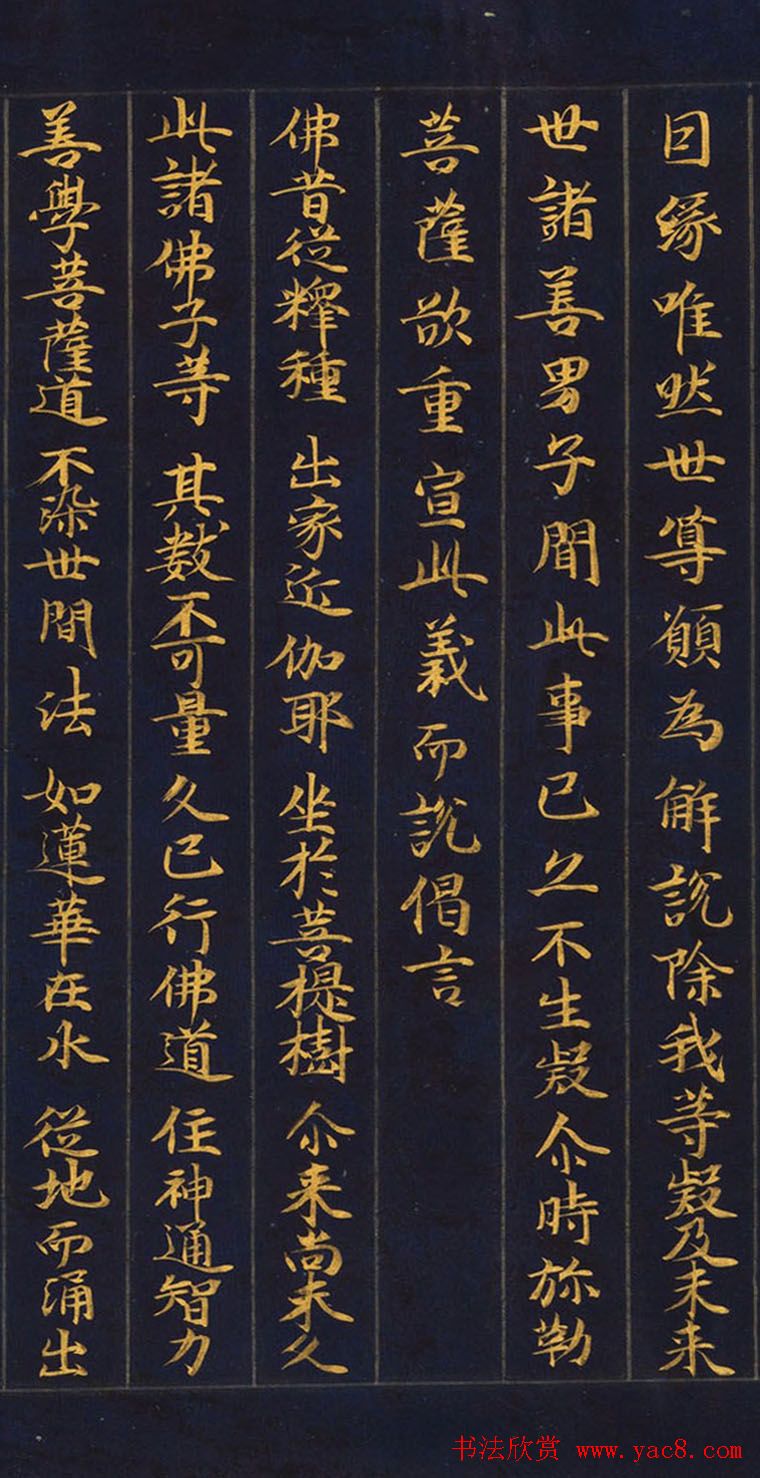 因緣唯然世尊願為解說除我等疑及未来
世諸善男子聞此事已久不生疑尒時弥勒
菩薩欲重宣此義而說偈言
佛昔從釋種 出家近伽耶 坐於菩提樹 尒来尚未久
此諸佛子等 其數不可量 久已行佛道 住神通智力
善學菩薩道 不染世間法 如蓮華在水 從地而涌出
书法欣赏 www.yac8.com